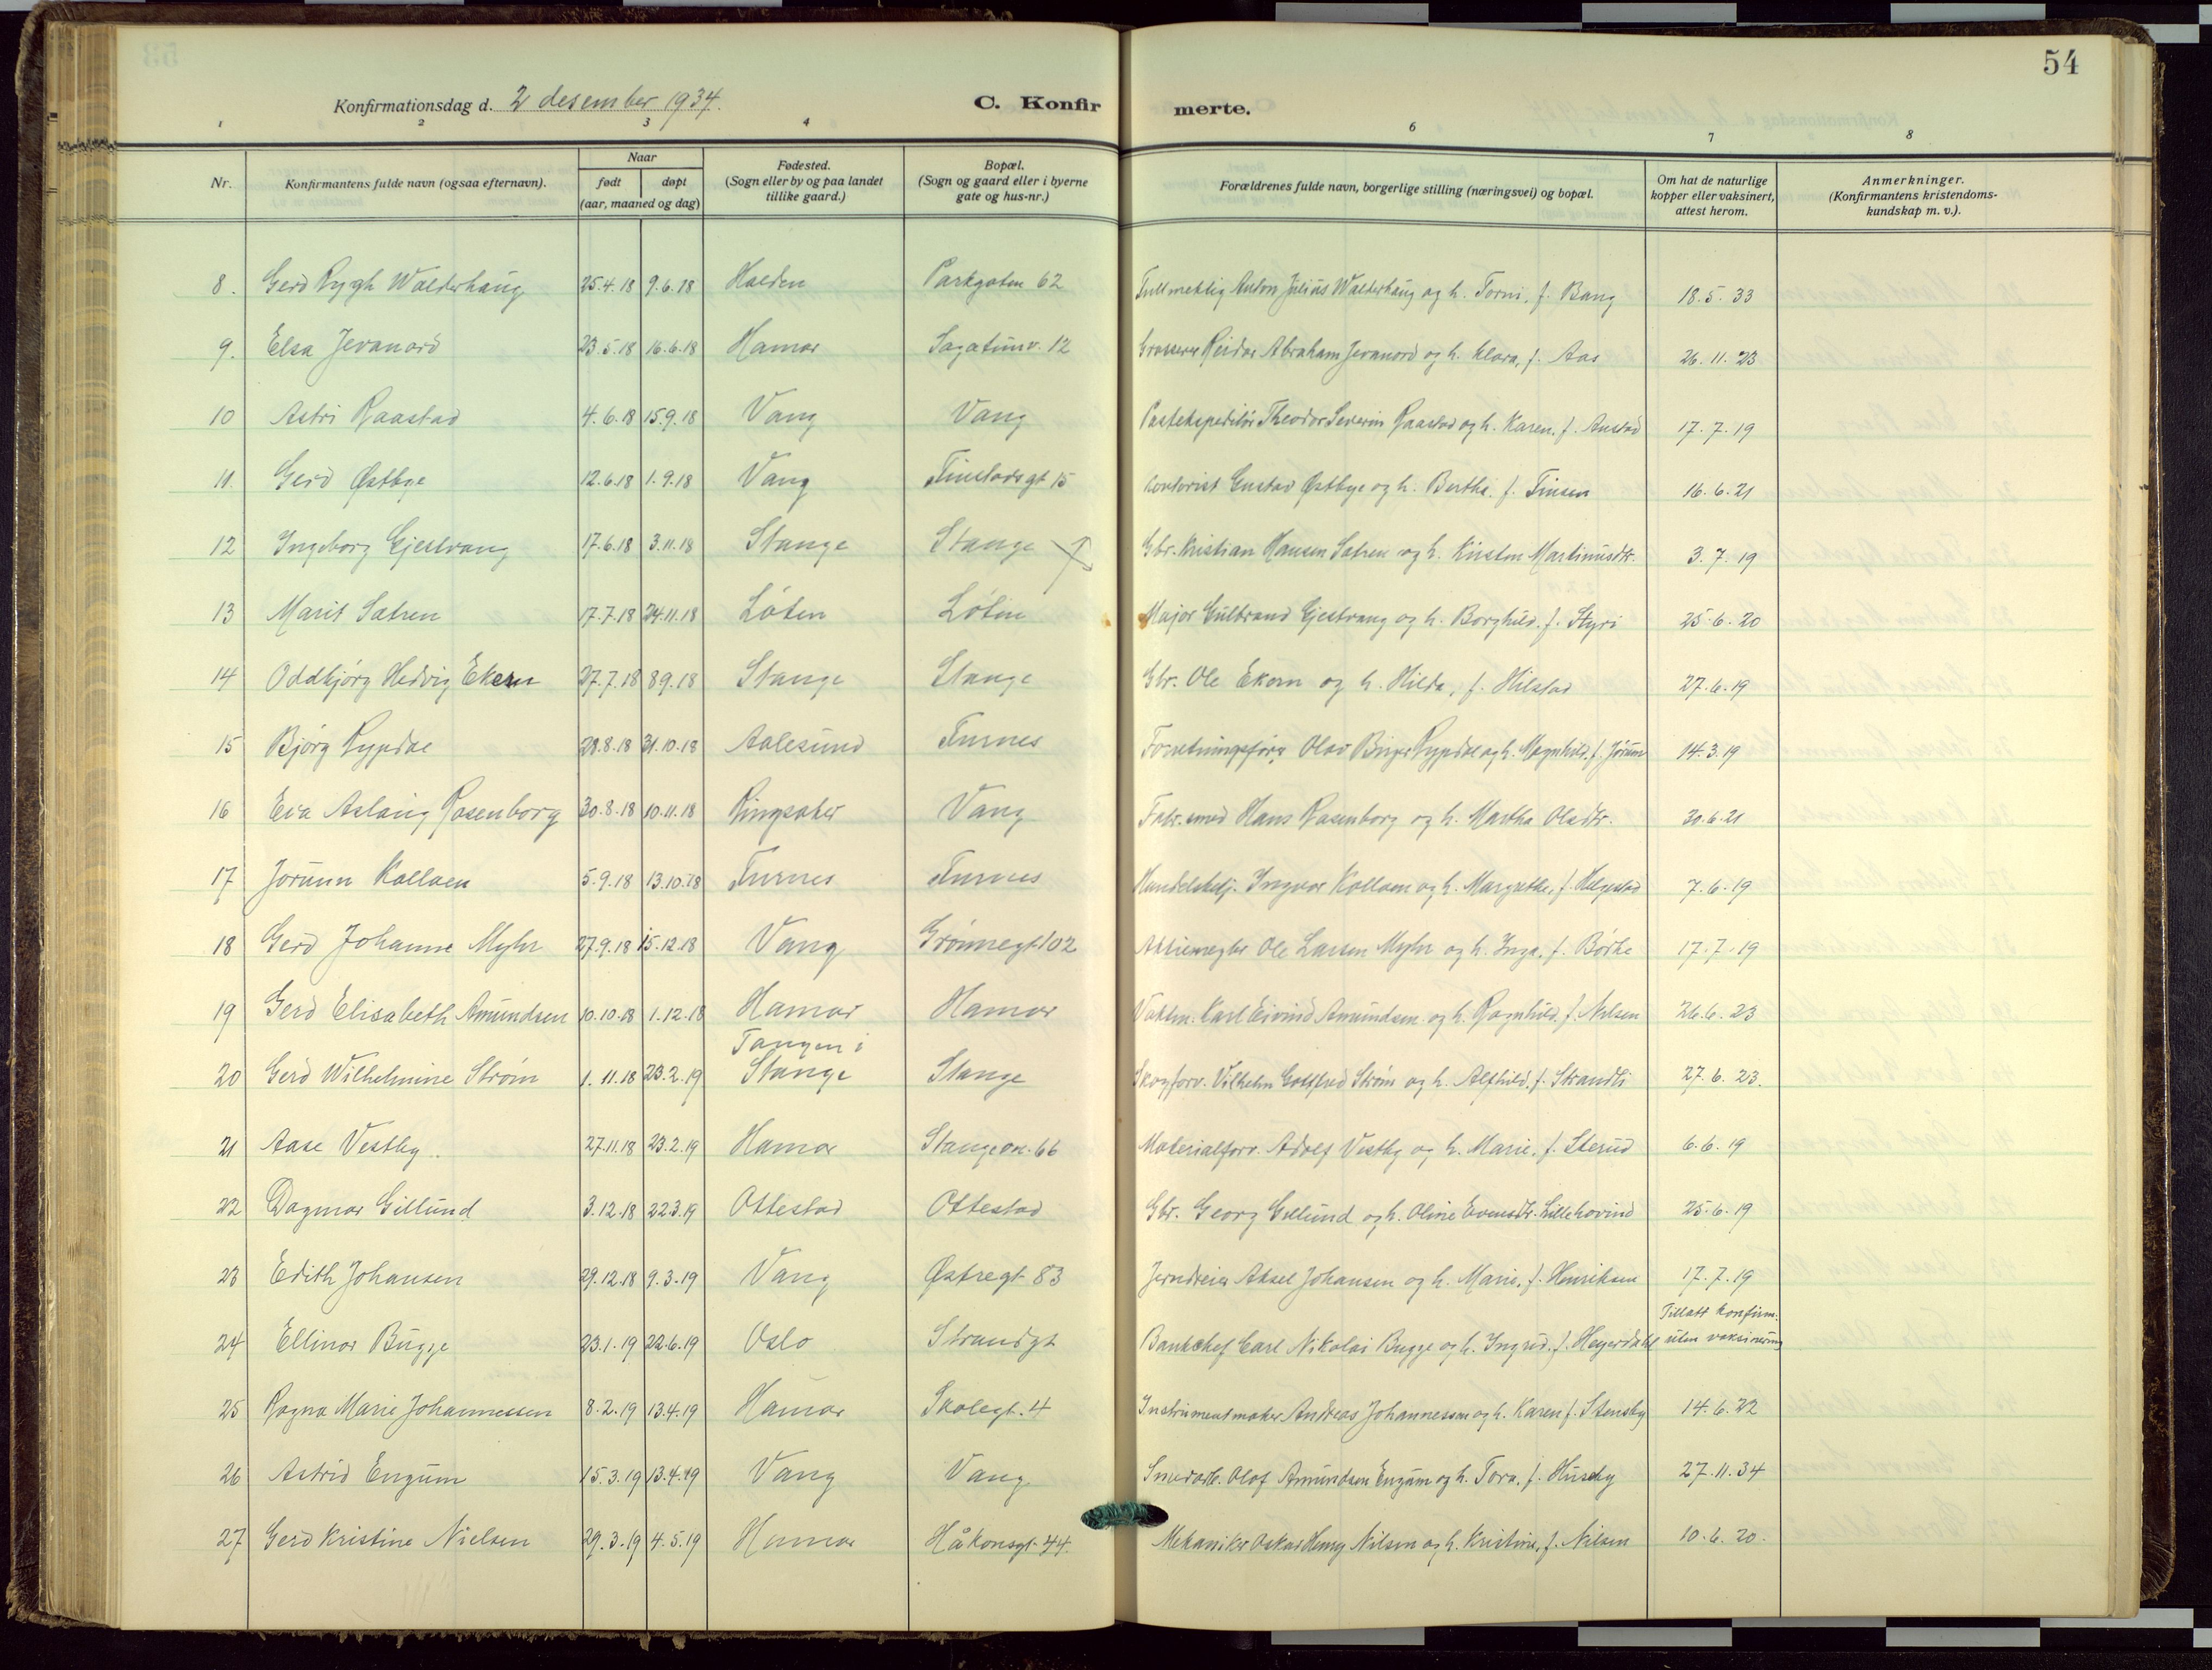 54
Konfirmationsdag d. 2 desember 1934.
C. Konfirmerte.
1 2 3 4 6 7 8
Nr.
Konfirmantens fulde navn (ogsaa efternavn).
Naar
født døpt
(aar, maaned og dag)
Fødested.
(Sogn eller by og paa landet
tillike gaard.)
Bopæl.
(Sogn og gaard eller i byerne
gate og hus-nr.)
Forældrenes fulde navn, borgerlige stilling (næringsvei) og bopæl.
Om hat de naturlige
kopper eller vaksinert,
attest herom.
Anmerkninger.
(Konfirmantens kristendoms-
kundskap m. v.).
8. Gerd Rygh Walderhaug 25.4.18 9.6.18 Halden Parkgaten 62 Fullmektig Anton Julius Walderhaug og h. Torni, f. Bang 18.5.33
9. Elsa Jevanord 23.5.18 16.6.18 Hamar Sagatunv. 12 Grosserer Reidar Abraham Jevanord og h. Klara, f. Aas 26.11.23
10 Astri Raastad 4.6.18 15.9.18 Vang Vang Postekspeditör Theodor Severin Raastad og h. Karen, f. Austad 17.7.19
11. Gerd Østbye 12.6.18 1.9.18 Vang Finstadsgt 15 Kontorist Gustav Østbye og h. Bertha, f. Tinsen 16.6.21
12 Ingeborg Gjestvang 17.6.18 3.11.18 Stange Stange Gbr. Kristian Hansen Sætren og h. Kirsten Martinusdtr. 3.7.19
13 Marit Sætren 17.7.18 24.11.18 Löten Löten Major Gulbrand Gjestvang og h. Borghild, f. Styri 25.6.20
14 Oddbjörg Hedvig Ekern 27.7.18 8.9.18 Stange Stange Gbr. Ole Ekern og h. Hilda, f. Hilstad 27.6.19
15 Björg Rypdal 28.8.18 31.10.18 Aalesund Furnes Forretningsförer Olav Birger Rypdal og h. Magnhild, f. Jörum 14.3.19
16 Eva Aslaug Rosenborg 30.8.18 10.11.18 Ringsaker Vang Fabr.smed Hans Rosenborg og h. Martha Olsdtr. 30.6.21
17 Jorunn Kollaen 5.9.18 13.10.18 Furnes Furnes Handelsbetj. Ingvar Kollaen og h. Margrethe, f. Helgestad 7.6.19
18 Gerd Johanne Myhr 27.9.18 15.12.18 Vang Grönnegt 102 Aktiemegler Ole Larsen Myhr og h. Inga, f. Börke 17.7.19
19 Gerd Elisabeth Amundsen 10.10.18 1.12.18 Hamar Hamar Vaktm. Karl Eivind Amundsen og h. Ragnhild, f. Nilsen 26.6.23
20 Gerd Wilhelmine Ström 1.11.18 23.2.19 Tangen i Stange Stange Skogforv. Vilhelm Gottfred Ström og h. Alfhild, f. Strandli 27.6.23.
21 Aase Vestby. 27.11.18 23.2.19 Hamar Stangevn. 66 Materialforv. Adolf Vestby og h. Marie, f. Sterud 6.6.19
22 Dagmar Gillund 3.12.18 22.3.19 Ottestad Ottestad Gbr. Georg Gillund og h. Oline Evensdtr. Lillehovind 25.6.19
23 Edith Johansen 29.12.18 9.3.19 Vang Østregt 83 Jerndreier Aksel Johansen og h. Marie, f. Henriksen 17.7.19
24 Ellinor Bugge 23.1.19 22.6.19 Oslo Strandgt Bankchef Carl Nikolai Bugge og h. Ingrid, f. Heyerdahl Tillatt konfirm. uten vaksinering
25 Ragna Marie Johannessen 8.2.19 13.4.19 Hamar Skolegt. 4 Instrumentmaker Andreas Johannessen og h. Karen f. Stensby 14.6.22
26 Astrid Engum 15.3.19 13.4.19 Vang Vang Smedarb. Olof Amundsen Engum og h. Tora, f. Huseby 27.11.34
27 Gerd Kristine Nielsen 29.3.19 4.5.19 Hamar Håkonsgt. 44. Mekaniker Oskar Henry Nilsen og h. Kristine, f. Nilsen 10.6.20.